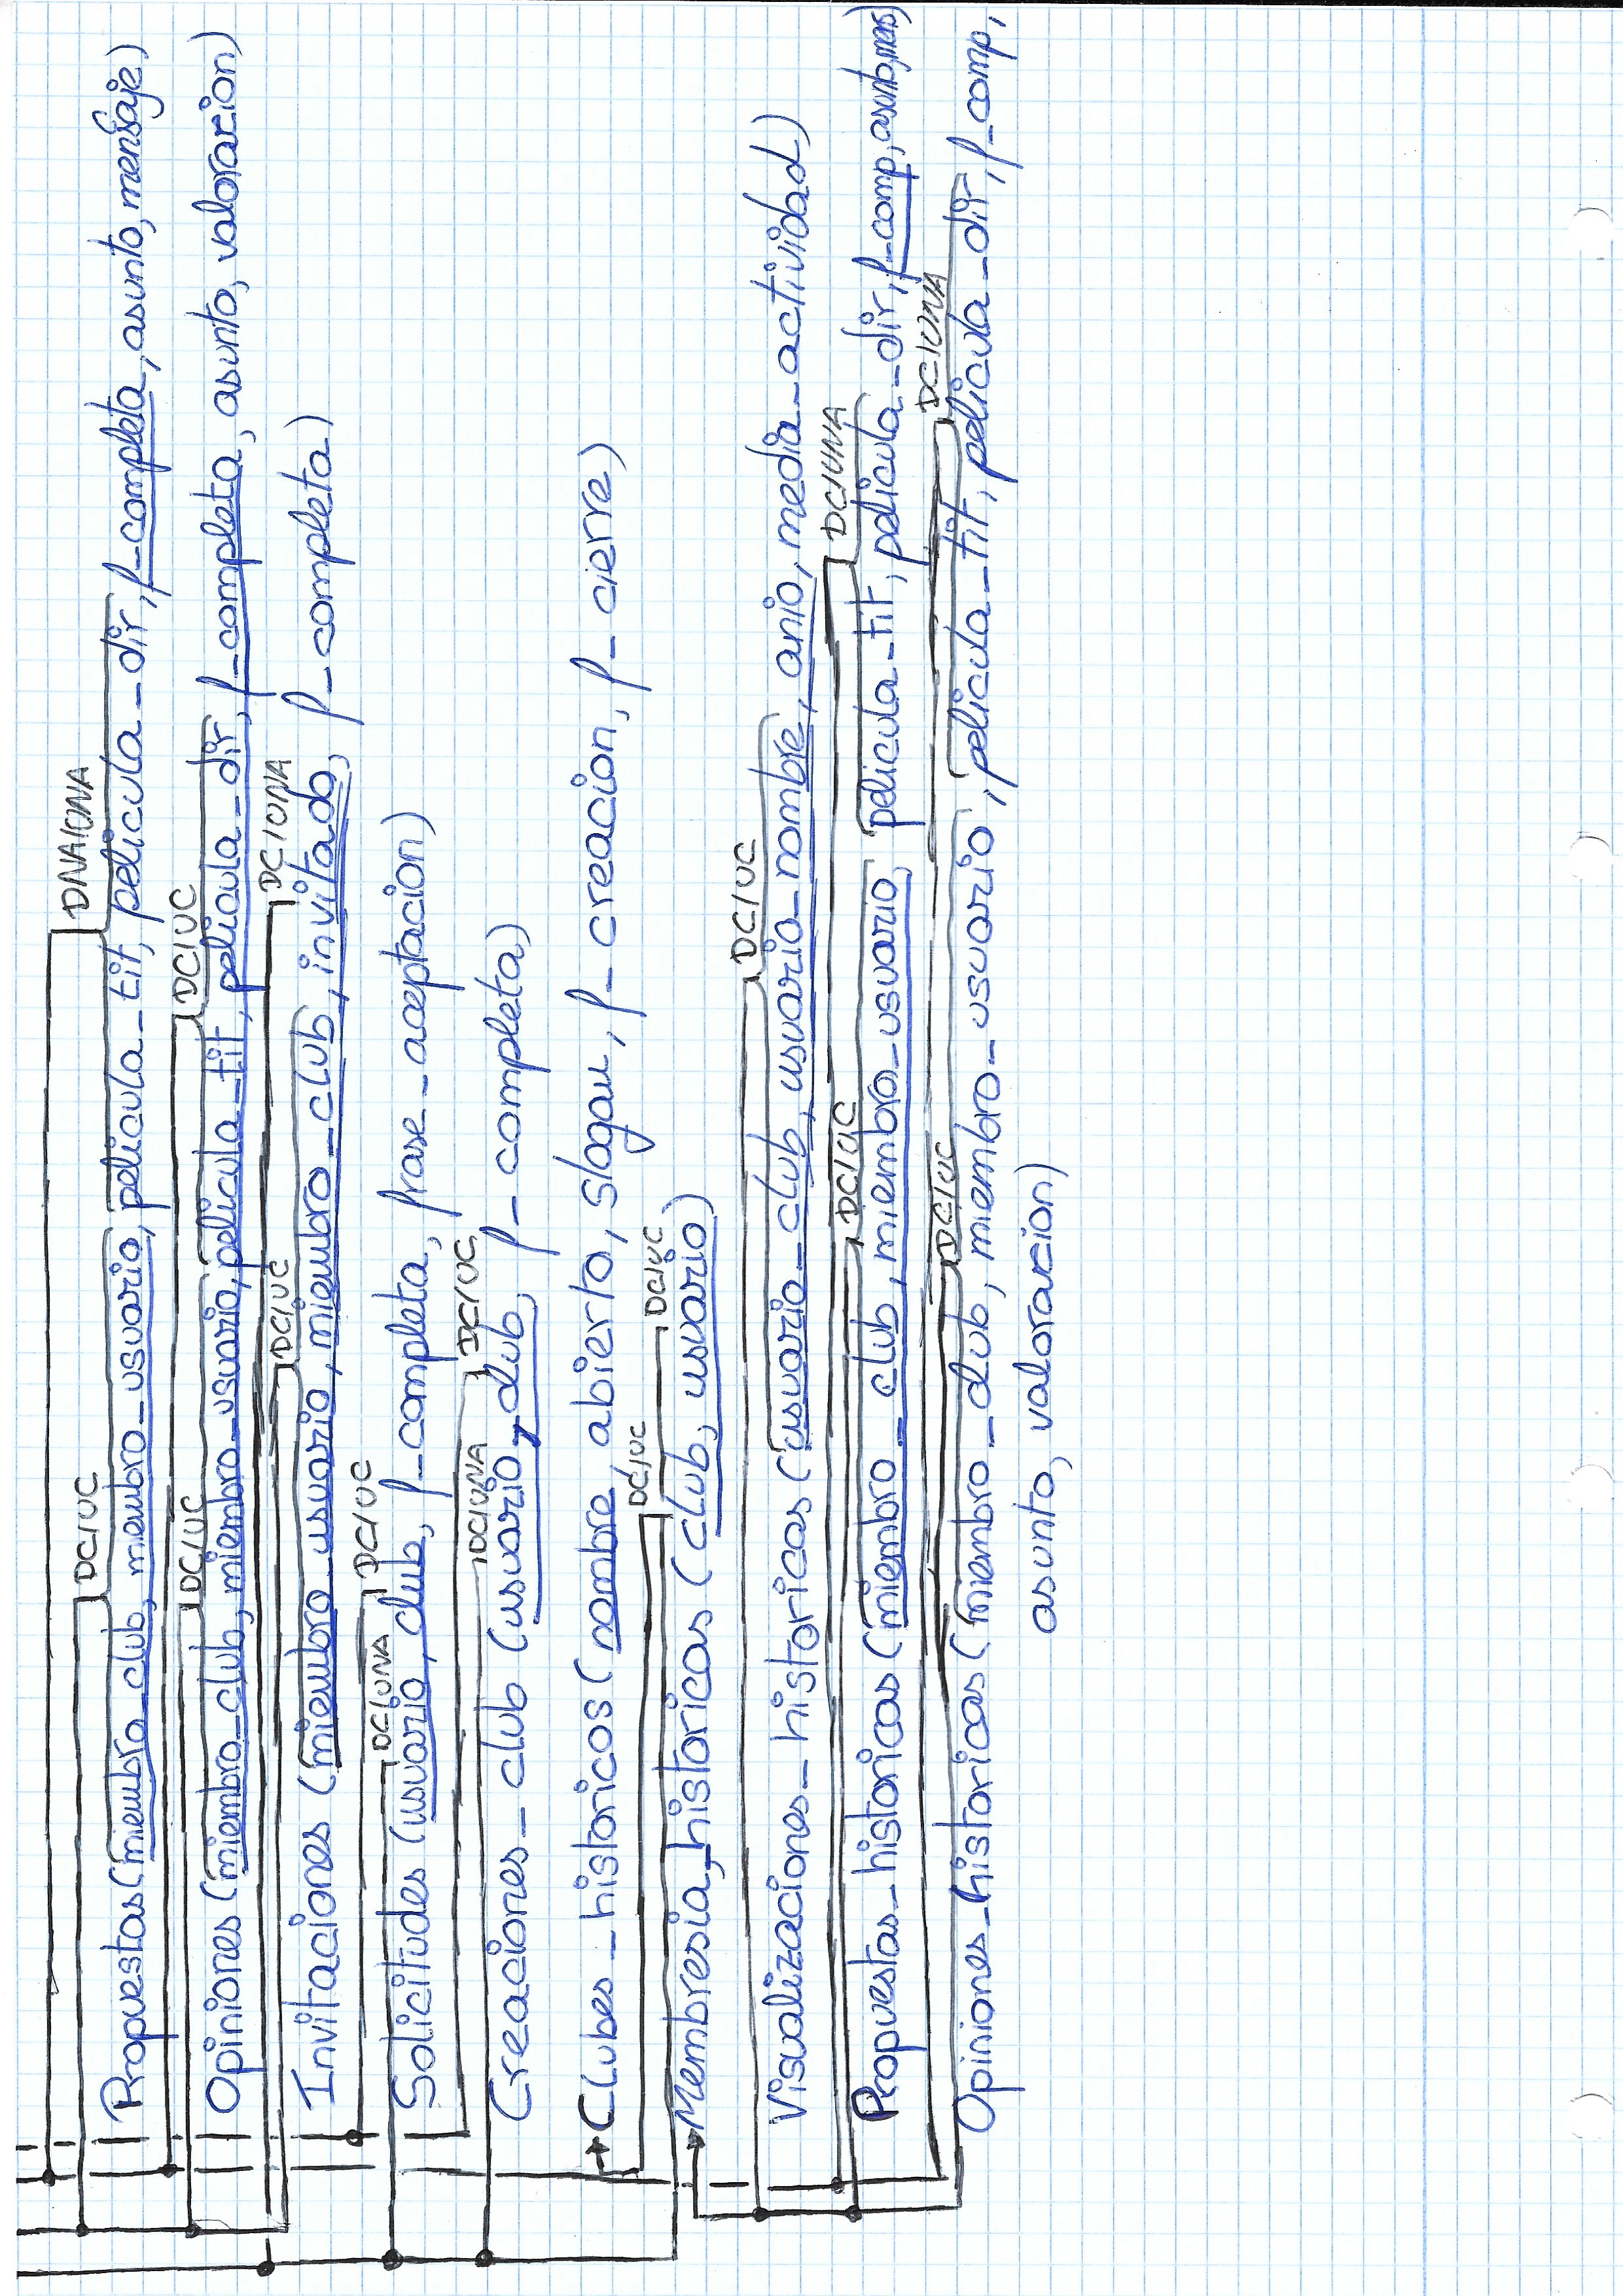 DNA/UNA
DC/UC
Propuestas (miembro_club, miembro_usuario, pelicula_tit, pelicula_dir, f_completa, asunto, mensaje)
DC/UC DC/UC
Opiniones (miembro_club, miembro_usuario, pelicula_tit, pelicula_dir, f_completa, asunto, valoracion)
DC/UC DC/UNA
Invitaciones (miembro_usuario, miembro_club, invitado, f_completa)
DC/UNA DC/UC
Solicitudes (usuario, club, f_completa, frase_aceptacion)
DC/UNA DC/UC
Creaciones_club (usuario, club, f_completa)
Clubes_historicos (nombre, abierto, slogan, f_creacion, f_cierre)
DC/UC DC/UC
Membresia_historicas (club, usuario)
DC/UC
Visualizaciones_historicas (usuario_club, usuario_nombre, anio, media_actividad)
DC/UC DC/UNA
Propuestas_historicas (miembro_club, miembro_usuario, pelicula_tit, pelicula_dir, f_comp, asunto, mens)
DC/UC DC/UNA
Opiniones_historicas (miembro_club, miembro_usuario, pelicula_tit, pelicula_dir, f_comp,
asunto, valoracion)